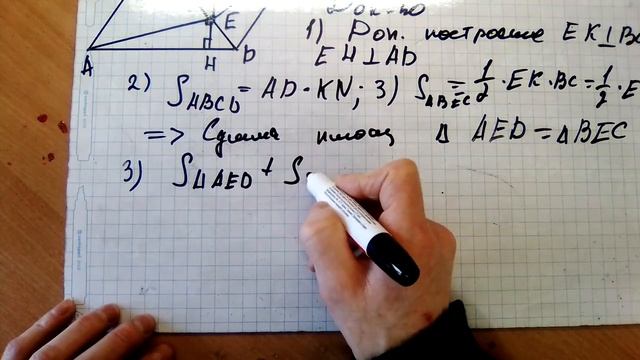 1) Доп. построение EK⊥BC
E
A
H
D
EH⊥AD
2) SABCD = AD·KN; 3) S△BEC = 1/2·EK·BC = 1/2·E
=> Сумма площ △ AED = △BEC
3) S△AED + S